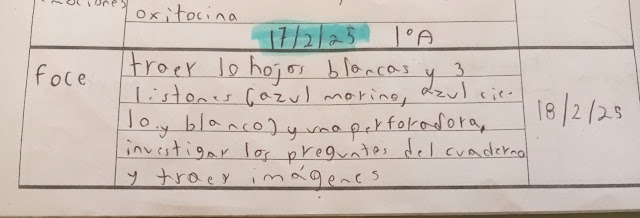 oxitocina
17/2/25 1°A
foce
traer 10 hojas blancas y 3
listones (azul marino, azul cie-
lo y blanco) y una perforadora,
investigar las preguntas del cuaderno
y traer imágenes
18/2/25